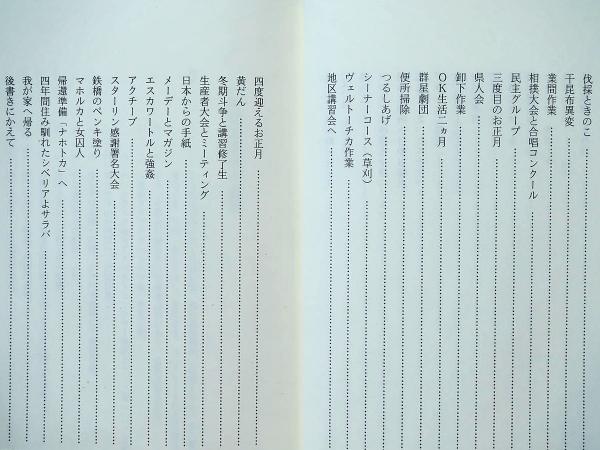 伐採ときのこ
干昆布異変
業間作業
相撲大会と合唱コンクール
民主グループ
三度目のお正月
県人会
卸下作業
OK生活二ヵ月
群星劇団
便所掃除
つるしあげ
シーナーコース（草刈）
ヴェルトーチカ作業
地区講習会へ
四度迎えるお正月
黄だん
冬期斗争と講習修了生
生産者大会とミーティング
日本からの手紙
メーデーとマガジン
エスカワートルと強姦
アクチーブ
スターリン感謝署名大会
鉄橋のペンキ塗り
マホルカと女囚人
帰還準備「ナホトカ」へ
四年間住み馴れたシベリアよサラバ
我が家へ帰る
後書きにかえて